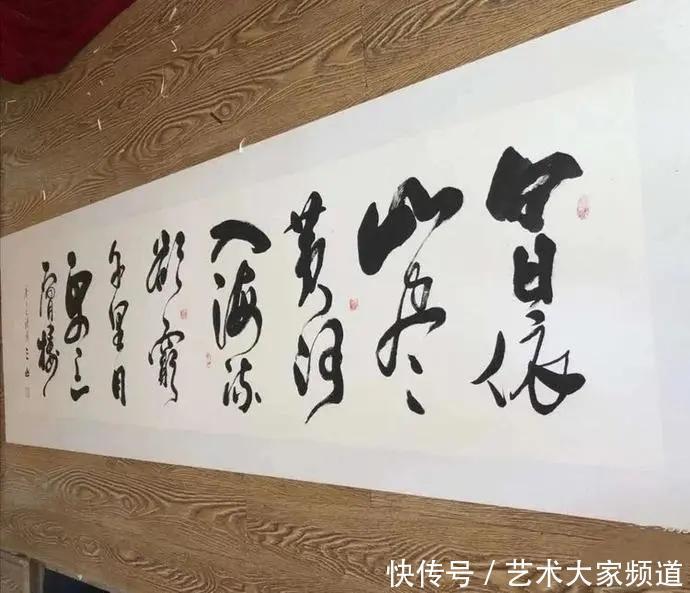 白日依
山尽
黄河
入海流
欲窮
千里目
更上一
層樓
快传号 / 艺术大家频道